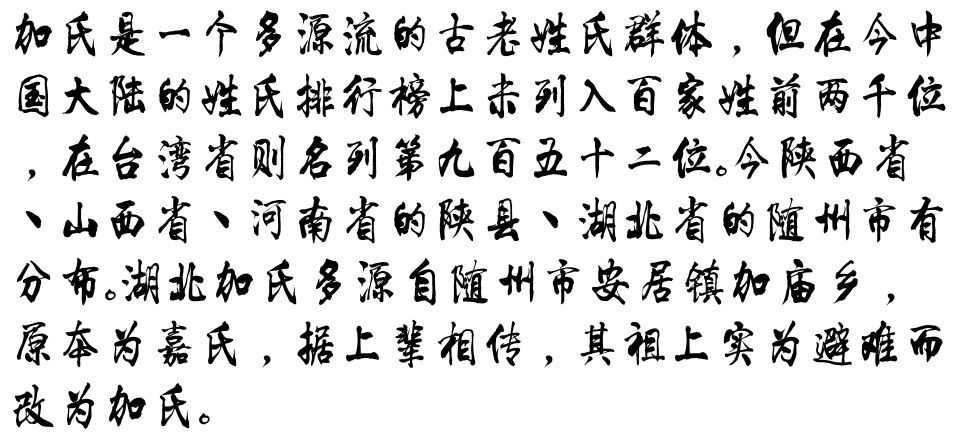 加氏是一个多源流的古老姓氏群体，但在今中
国大陆的姓氏排行榜上未列入百家姓前两千位
，在台湾省则名列第九百五十二位。今陕西省
、山西省、河南省的陕县、湖北省的随州市有
分布。湖北加氏多源自随州市安居镇加庙乡，
原本为嘉氏，据上辈相传，其祖上实为避难而
改为加氏。